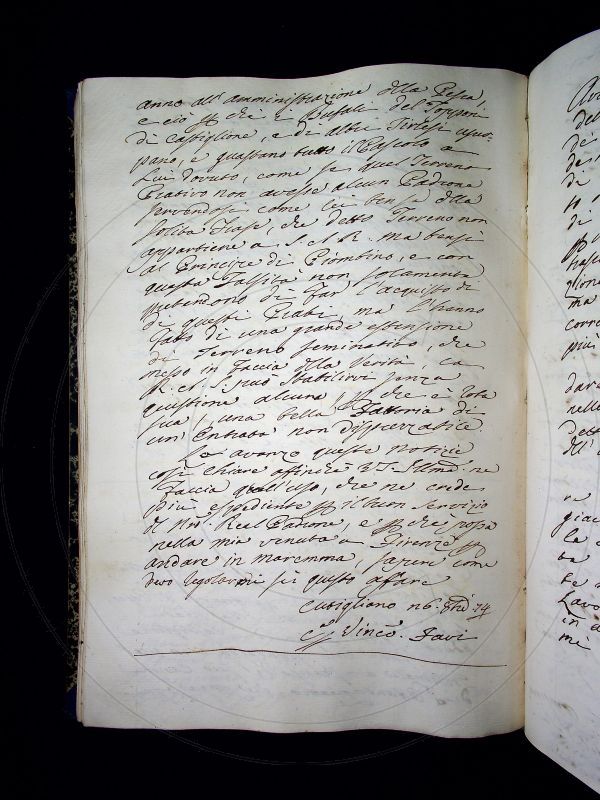 anno all'amministrazione della Pesca,
e ciò che i Bufali del
di Castiglione, e di altri usur-
pano, e guastano tutto il Pascolo a
Lui dovuto, come se quel Terreno
Prativo non avesse alcun Padrone
servendosi come lei ben sa della
solita frase, che detto Terreno non
appartiene a S. A. R. ma bensì
al Principe di Piombino, e con
questa falsità non solamente
pretendono di far l'acquisto di
di questi Prati, ma l'hanno
fatto di una grande estensione
di Terreno seminativo, che
messo in faccia alla Verità,
R. A. S. può stabilirvi senza
quistione alcuna che è tota
sua, una bella Fattoria di
un'Entrata non disprezzabile.
Le avanzo queste notizie
così chiare affinchè Illma ne
faccia quell'uso, che ne crede
più espediente il buon servizio
Real Padrone, e che possa
nella mia venuta a Firenze
andare in maremma, sapere come
devo regolarmi su questo affare
Cutigliano 26. 74
Vinco.
Ava
del
de
di
di
glione
ma
corre
più
dare
nelle
dett
dell'
re
giac
le
te
te
Lavo
in
mi